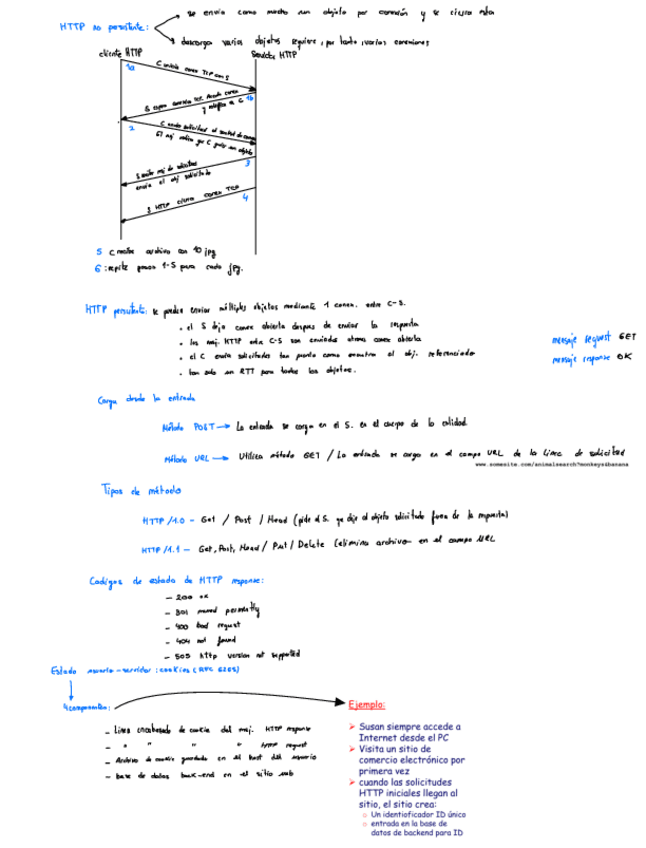 se envia como mucho un objeto por conexión y se cierra esta
HTTP no persistente:
descarga varios objetos requiere, por tanto, varias conexiones
cliente HTTP
Servidor HTTP
1a
C inicia conex TCP con S
1b
S espera conexión TCP. Acepta conex
y notifica a C
2
C envía solicitud al socket de conex
msj indica que C quiere un objeto
3
S recibe msj de solicitud
envía el obj solicitado
4
S HTTP cierra conex TCP
5 C recibe archivo con 10 jpg
6: repite pasos 1-5 para cada jpg.
HTTP persistente: se pueden enviar múltiples objetos mediante 1 conex. entre C-S.
• el S deja conex abierta despues de enviar la respuesta
• los msj. HTTP entre C-S son enviados conex abierta
• el C envía solicitudes tan pronto como encuentra el obj. referenciado
• tan solo un RTT para todos los objetos.
mensaje request GET
mensaje response OK
Carga desde la entrada
Método POST → La entrada se carga en el S. en el cuerpo de la
Método URL → Utiliza método GET / La entrada se carga en el campo URL de la línea de solicitud
www.somesite.com/animalsearch?monkeys&banana
Tipos de método
HTTP/1.0 - Get / Post / Head (pide al S. que deje al objeto solicitado fuera de la respuesta)
HTTP/1.1 - Get, Post, Head / Put / Delete (elimina archivo en el campo URL
Codigos de estado de HTTP response:
- 200 ok
- 301 moved permanently
- 400 bad request
- 404 not found
- 505 http version not supported
Estado usuario-servidor: cookies (RFC 6265)
4 componentes:
- Línea encabezado de cookie del msj. HTTP response
- " " " " HTTP request
- Archivo de cookie guardado en el host del usuario
- base de datos back-end en el sitio web
Ejemplo:
➢ Susan siempre accede a
Internet desde el PC
➢ Visita un sitio de
comercio electrónico por
primera vez
➢ cuando las solicitudes
HTTP iniciales llegan al
sitio, el sitio crea:
○ Un identiofieador ID único
○ entrada en la base de
datos de backend para ID